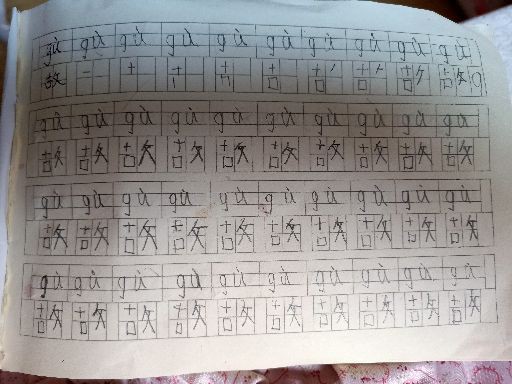 gù gù gù gù gù gù gù gù gù gù
故 一 十 故 9
gù gù gù gù gù gù gù gù gù gù
故 故 故 故 故 故 故 故 故 故
gù gù gù gù gù gù gù gù gù gù
故 故 故 故 故 故 故 故 故 故
gù gù gù gù gù gù gù gù gù gù
故 故 故 故 故 故 故 故 故 故